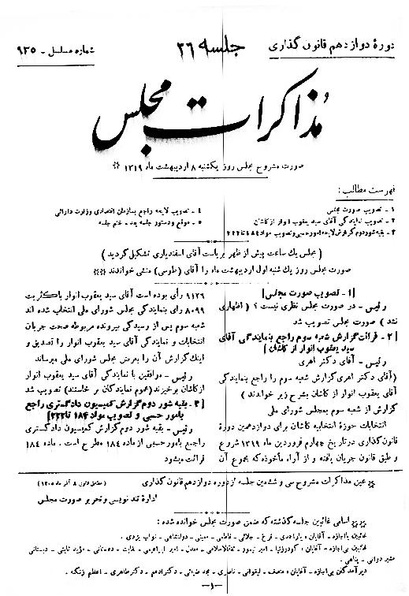 دورهٔ دوازدهم قانون گذاری
جلسه ۲۶
شماره مسلسل - ۹۳۵
مذاکرات مجلس
صورت مشروح مجلس روز یکشنبه ۸ اردیبهشت ماه ۱۳۱۹
فهرست مطالب:
۱ - تصویب صورت مجلس
۲ - تصویب نمایندگی آقای سید یعقوب انوار از کاشان
۳ - بقیه شور دوم گزارش لایحه امور حسبی و تصویب مواد ۱۸۴ تا ۲۲۲
۴ - تصویب لایحه راجع بسازمان اقتصادی وزارت دارائی
۵ - موقع و دستور جلسه بعد - ختم جلسه
(مجلس یک ساعت پیش از ظهر بریاست آقای اسفندیاری تشکیل گردید)
صورت مجلس روز یک شنبه اول اردیبهشت ماه را آقای (طوسی) منشی خواندند
[۱ - تصویب صورت مجلس]
رئیس - در صورت مجلس نظری نیست؟ (اظهاری
نشد) صورت مجلس تصویب شد
[۲ - قرائت گزارش شعبه سوم راجع بنمایندگی آقای
سید یعقوب انوار از کاشان]
رئیس - آقای دکتر اهری
(آقای دکتر اهری گزارش شعبه سوم را راجع بنمایندگی
آقای سید یعقوب انوار از کاشان بشرح زیر خواندند)
گزارش از شعبه سوم بمجلس شورای ملی
انتخابات حوزهٔ انتخابیه کاشان برای دوازدهمین دورهٔ
قانون گذاری در تاریخ چهارم فروردین ماه ۱۳۱۹ شروع
و طبق قانون جریان یافته و از آراء مأخوذه که مجموع آن
۹۱۲۶ رأی بوده است آقای سید یعقوب انوار باکثریت
۸۰۹۹ رأی بنمایندگی مجلس شورای ملی انتخاب شده اند
شعبه سوم پس از رسیدگی بپرونده مربوطه صحت جریان
انتخابات و نمایندگی آقای سید یعقوب انوار را تصدیق و
اینک گزارش آن را بعرض مجلس شورای ملی میرساند
رئیس - موافقین با نمایندگی آقای سید یعقوب انوار
از کاشان برخیزند (عموم نمایندگان بر خاستند) تصویب شد
[۳ - بقیه شور دوم گزارش کمیسیون دادگستری راجع
بامور حسبی و تصویب مواد ۱۸۴ تا ۲۲۲]
رئیس - بقیه شور دوم گزارش کمیسیون دادگستری
راجع بامور حسبی از ماده ۱۸۴ مطرح است. ماده ۱۸۴
قرائت میشود
عین مذاکرات مشروح سی و ششمین جلسه از دوره دوازدهم قانون گذاری
اداره تند نویسی و تحریر صورت مجلس
اسامی غائبین جلسه گذشته که ضمن صورت مجلس خوانده شده:
—۱—